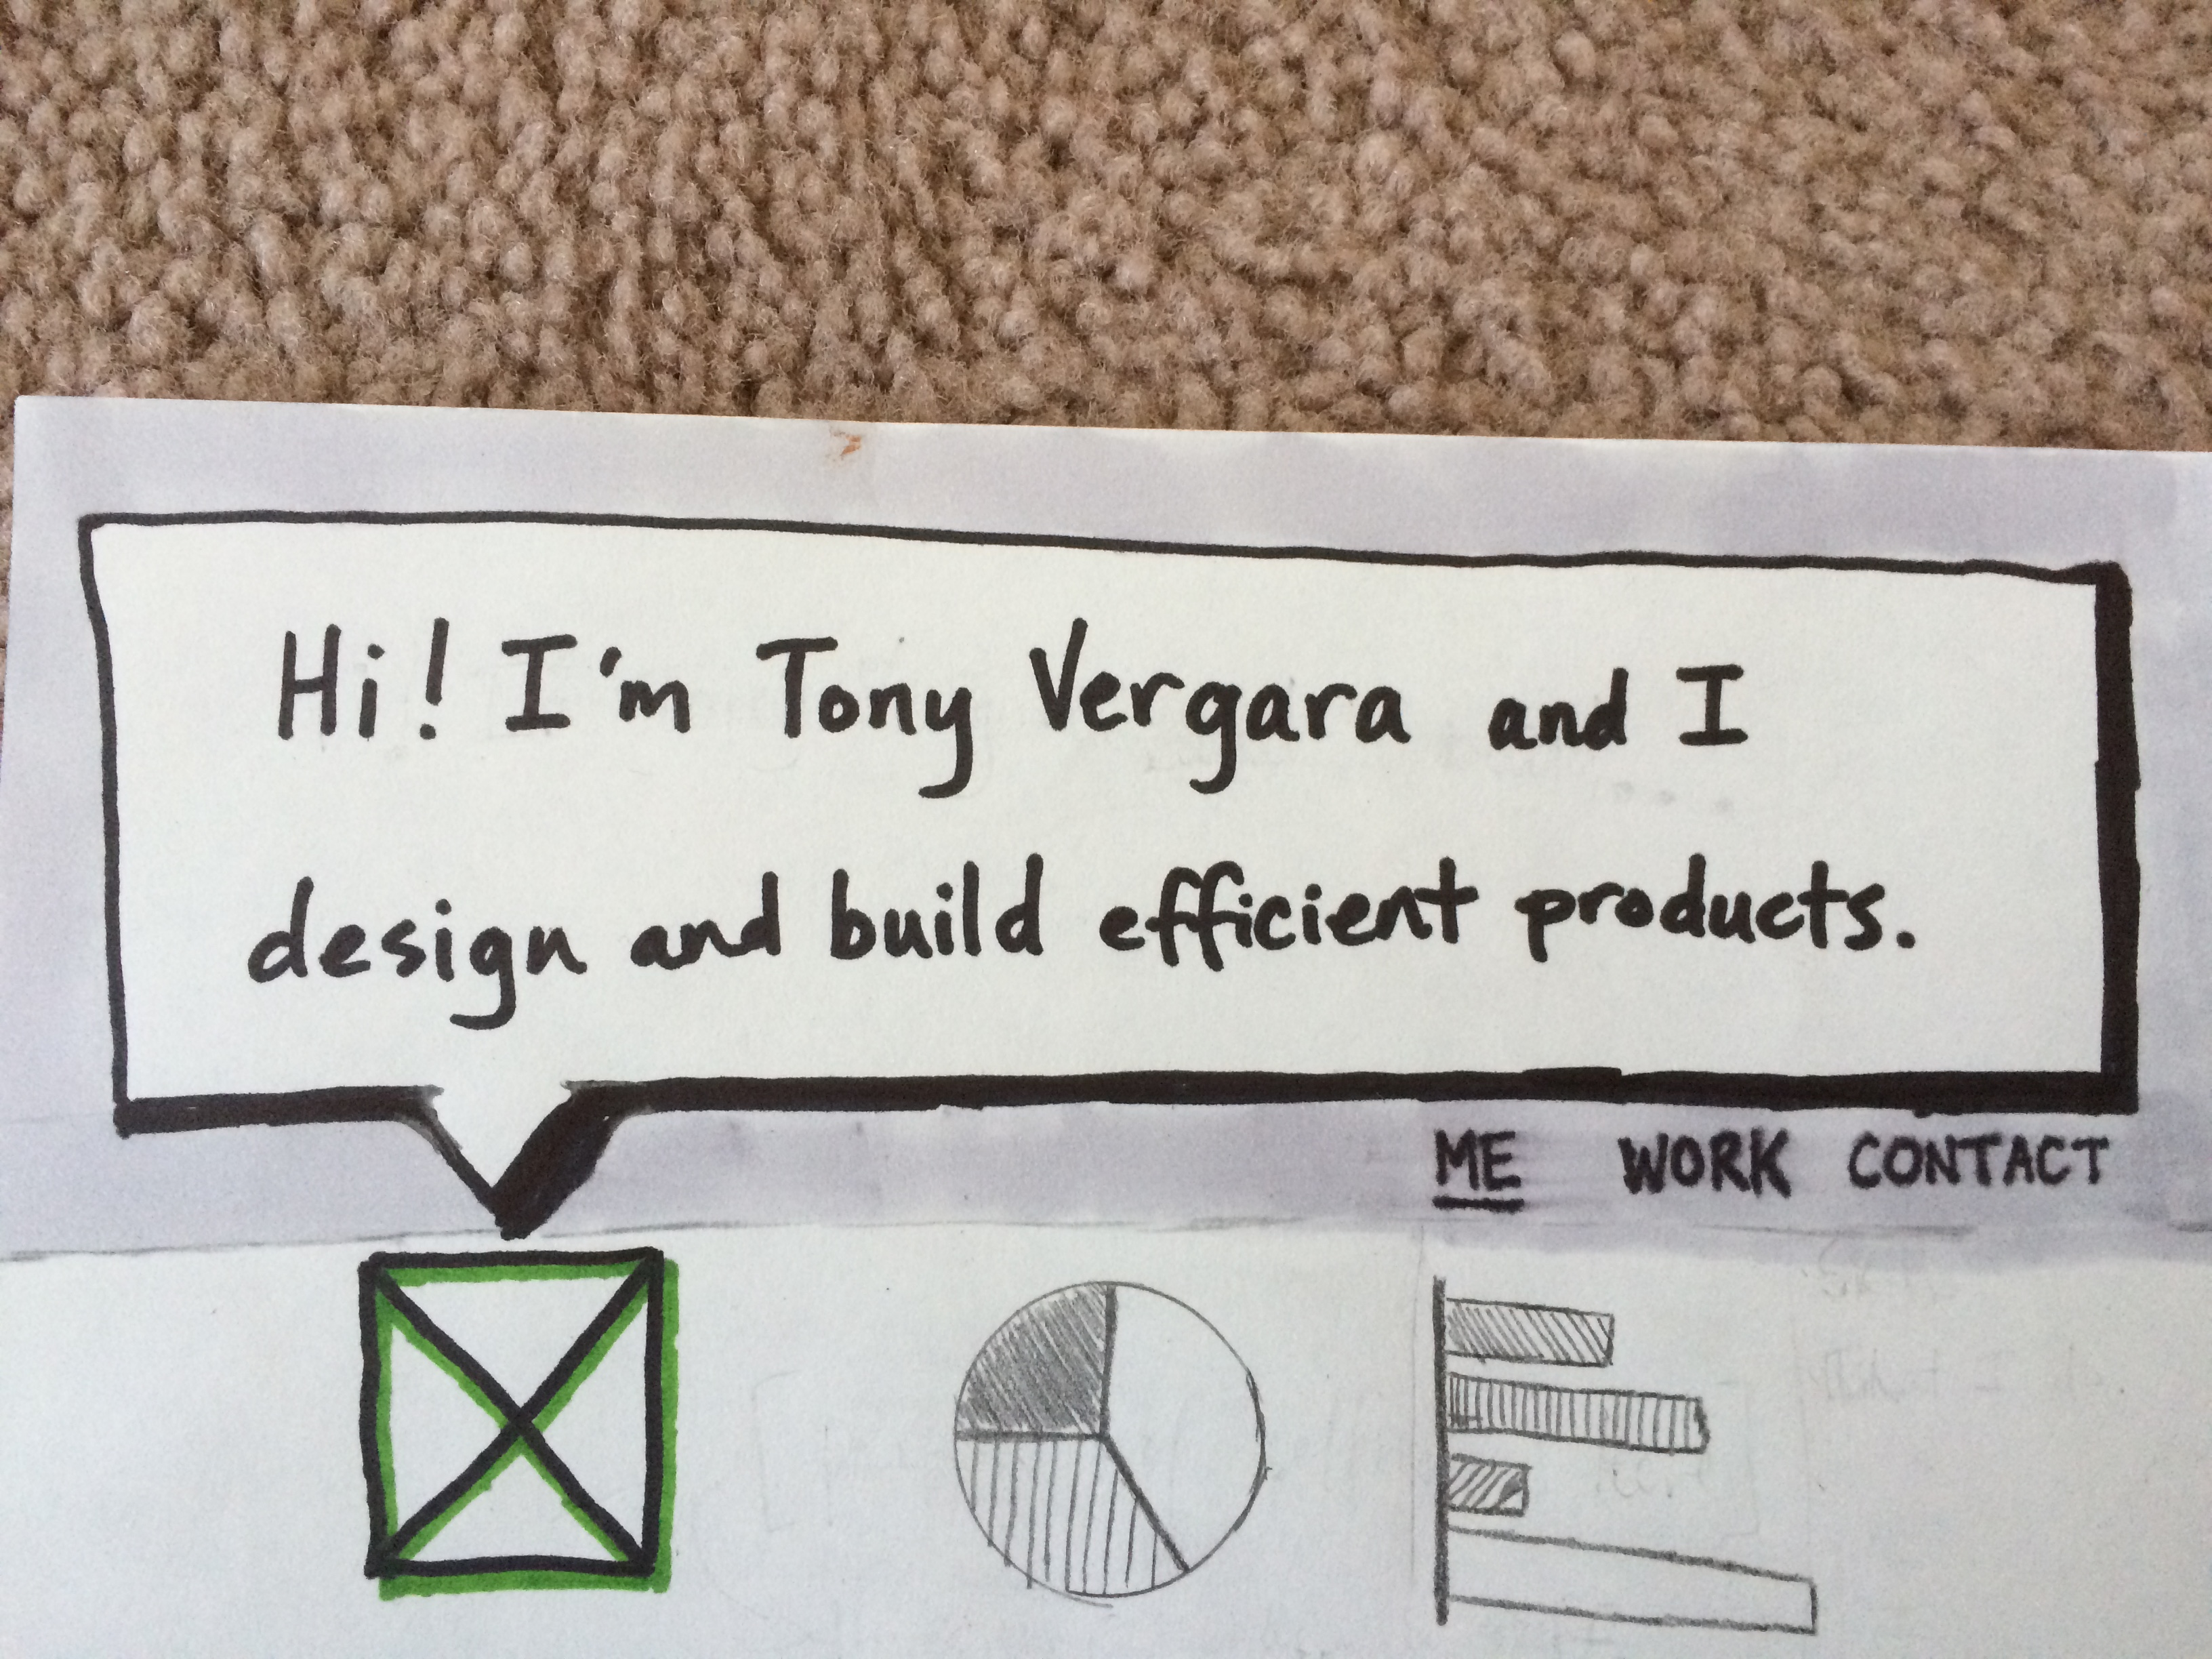 Hi! I'm Tony Vergara and I
design and build efficient products.
ME WORK CONTACT